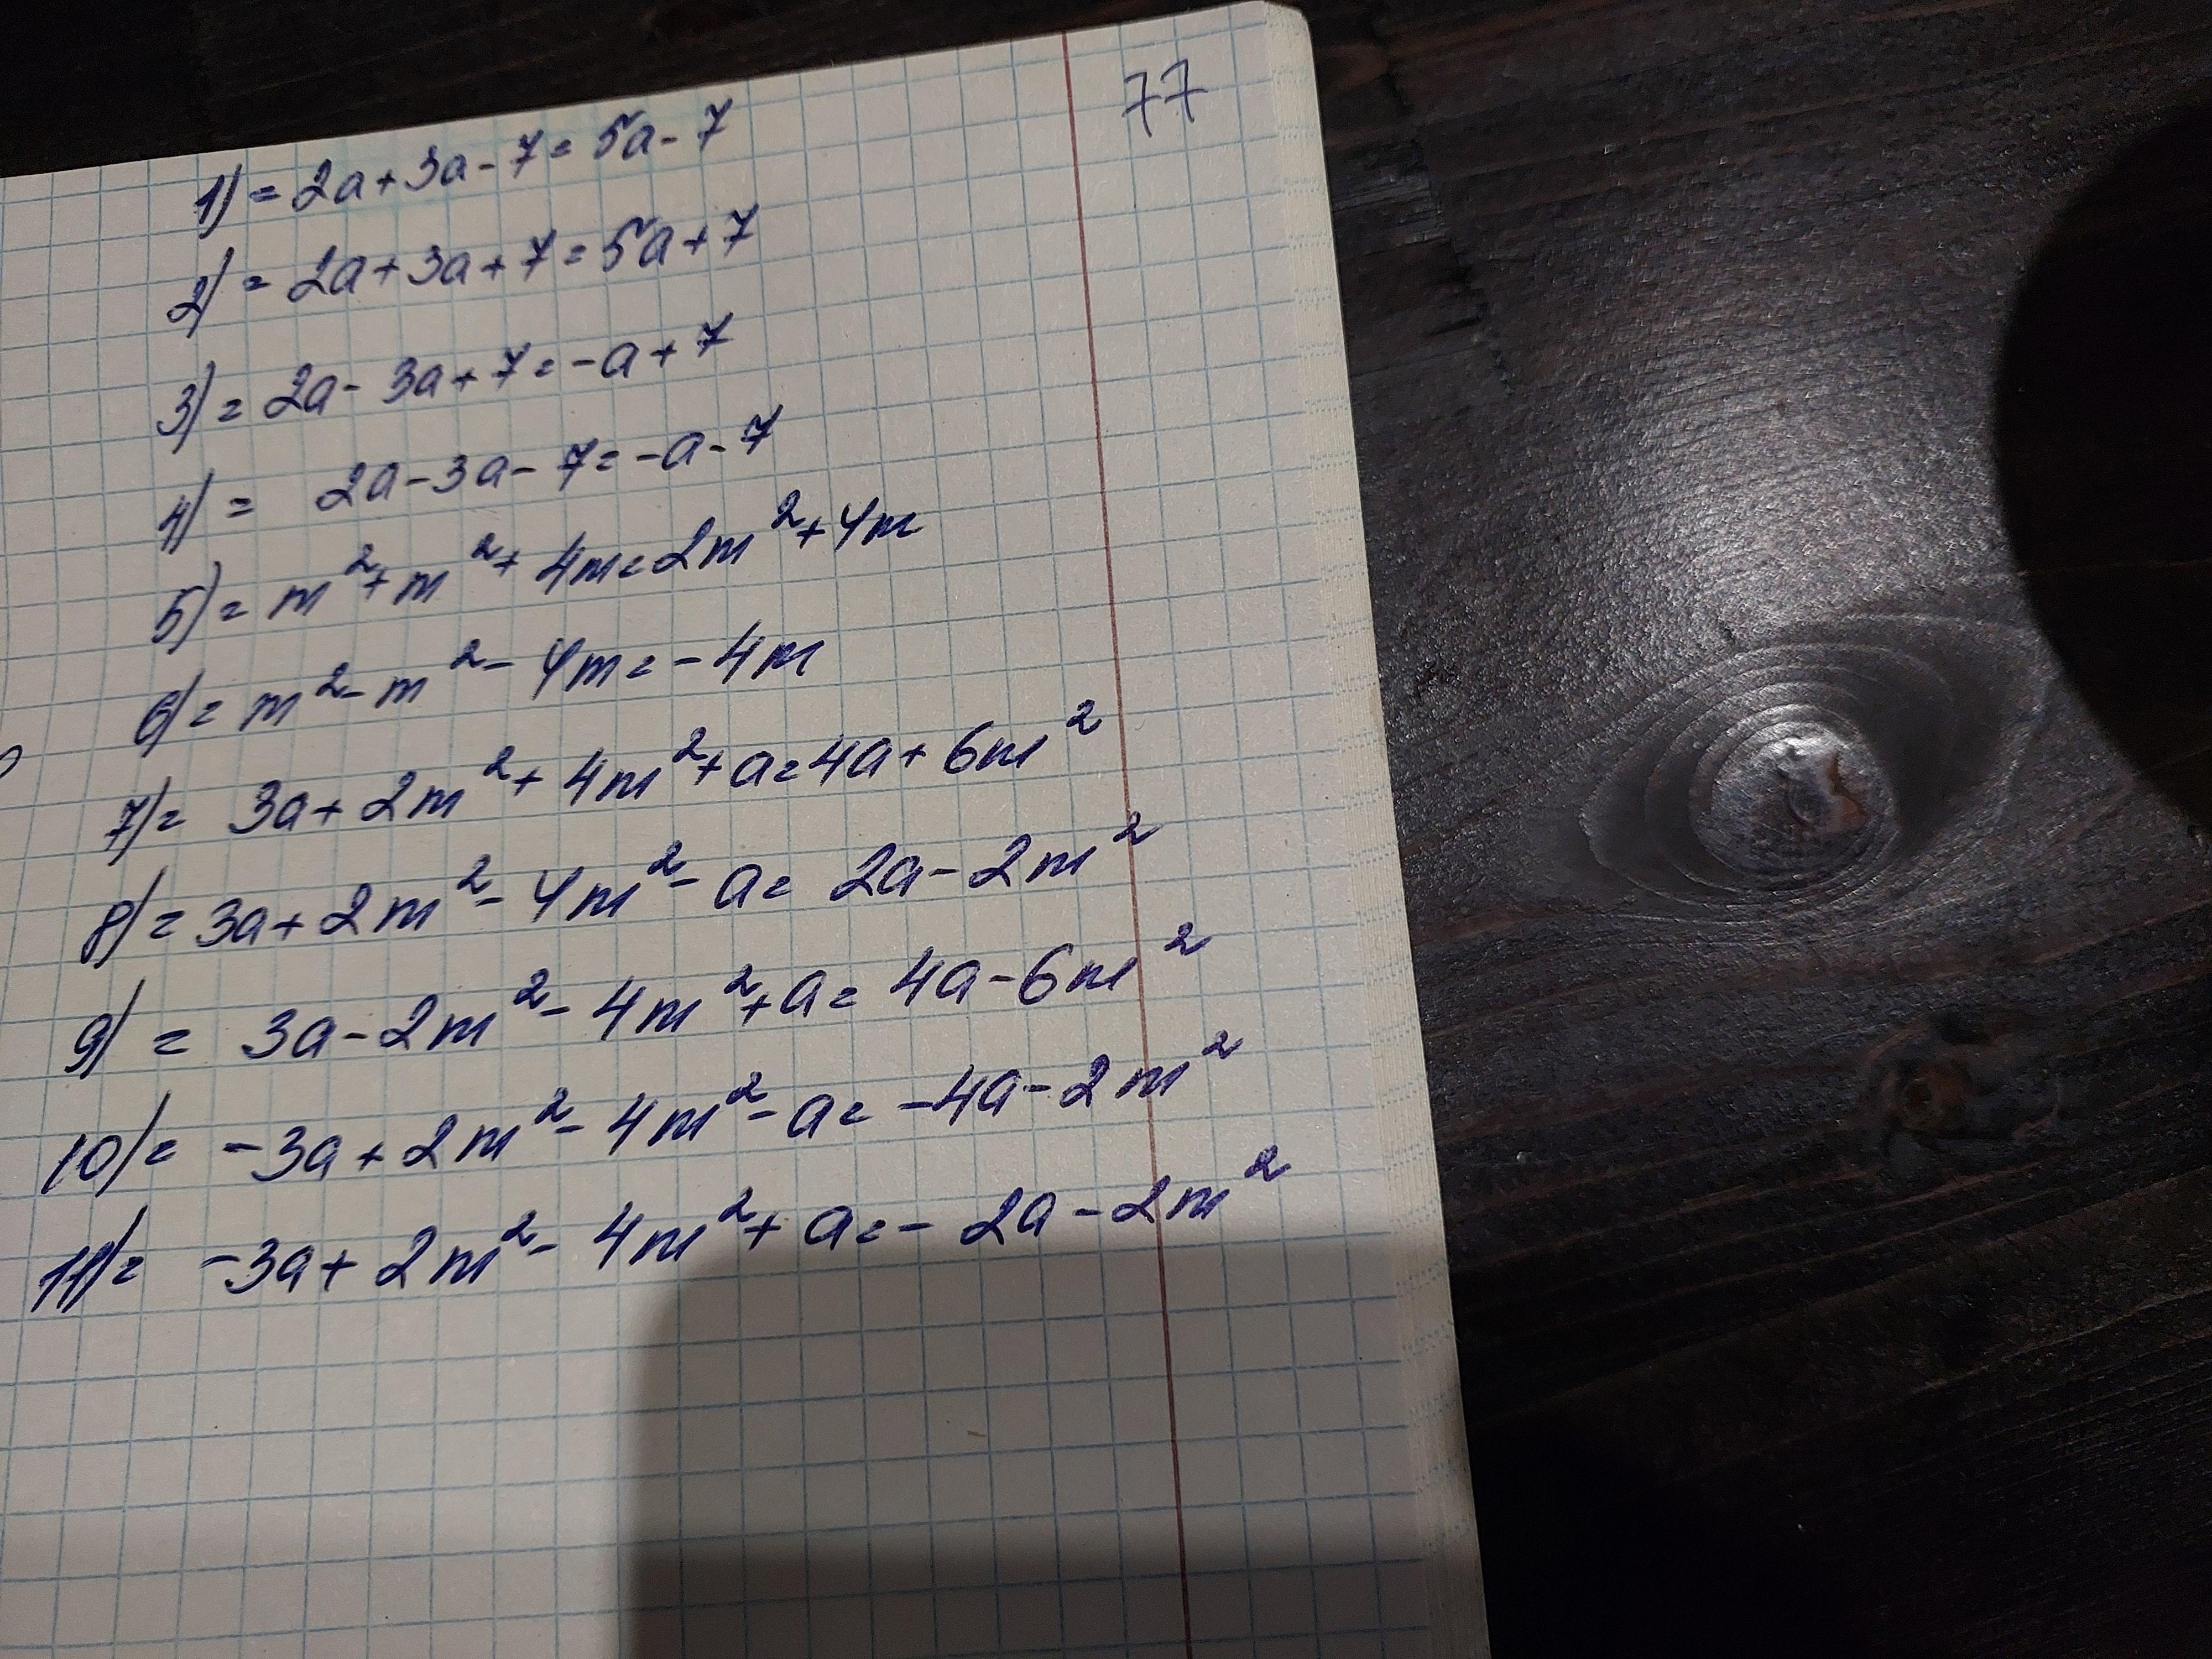 77
1) = 2a + 3a - 7 = 5a - 7
2) = 2a + 3a + 7 = 5a + 7
3) = 2a - 3a + 7 = -a + 7
4) = 2a - 3a - 7 = -a - 7
5) = m² + m² + 4m = 2m² + 4m
6) = m² - m² - 4m = -4m
7) = 3a + 2m² + 4m² + a = 4a + 6m²
8) = 3a + 2m² - 4m² - a = 2a - 2m²
9) = 3a - 2m² - 4m² + a = 4a - 6m²
10) = -3a + 2m² - 4m² - a = -4a - 2m²
11) = -3a + 2m² - 4m² + a = -2a - 2m²